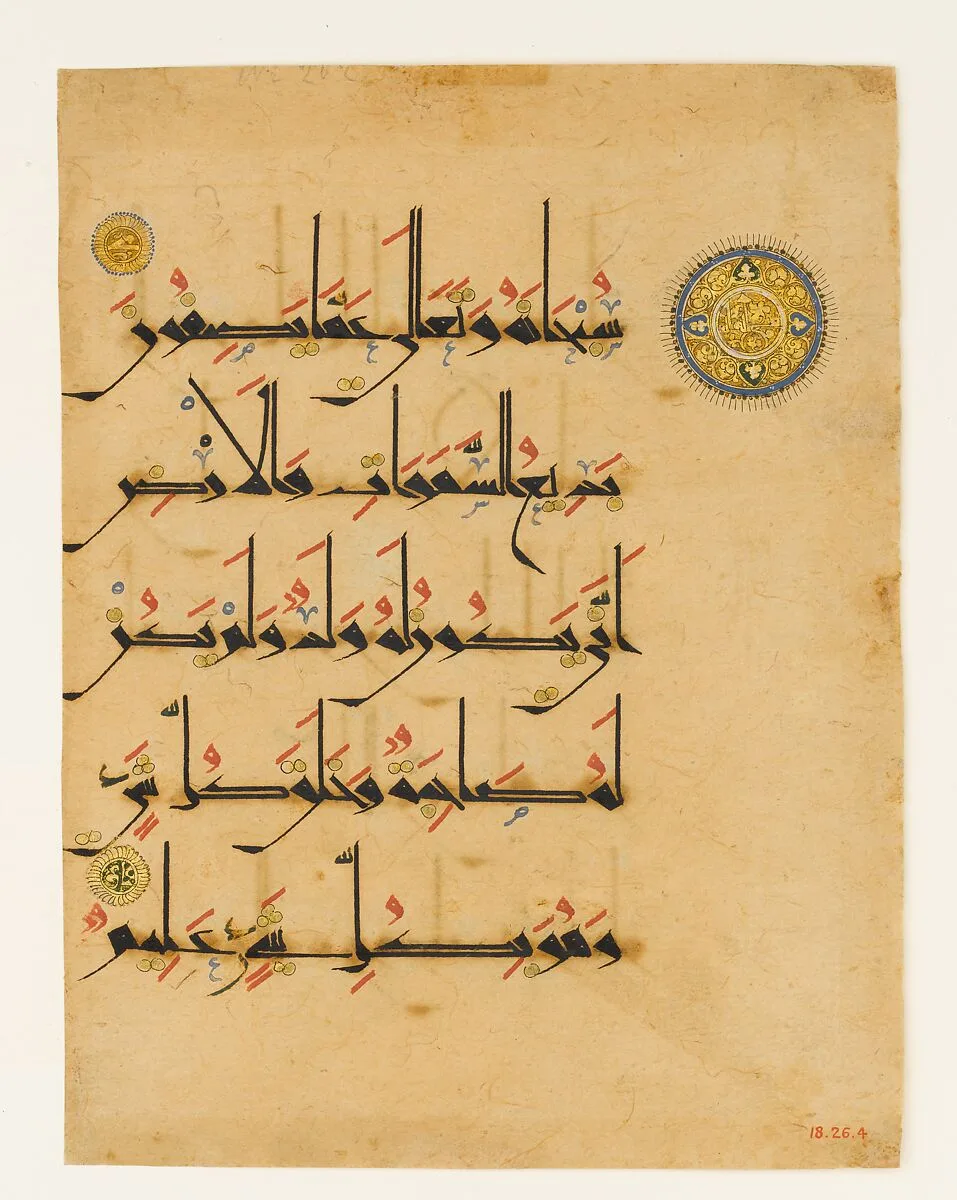 سُبْحَانَهُ وَتَعَالَى عَمَّا يَصِفُونَ
بَدِيعُ السَّمَوَاتِ وَالْاَرْضِ
اَنَّى يَكُونُ لَهُ وَلَدٌ وَلَمْ يَكُنْ
لَهُ صَاحِبَةٌ وَخَلَقَ كُلَّ شَيْءٍ
وَهُوَ بِكُلِّ شَيْءٍ عَلِيمٌ
18.26.4